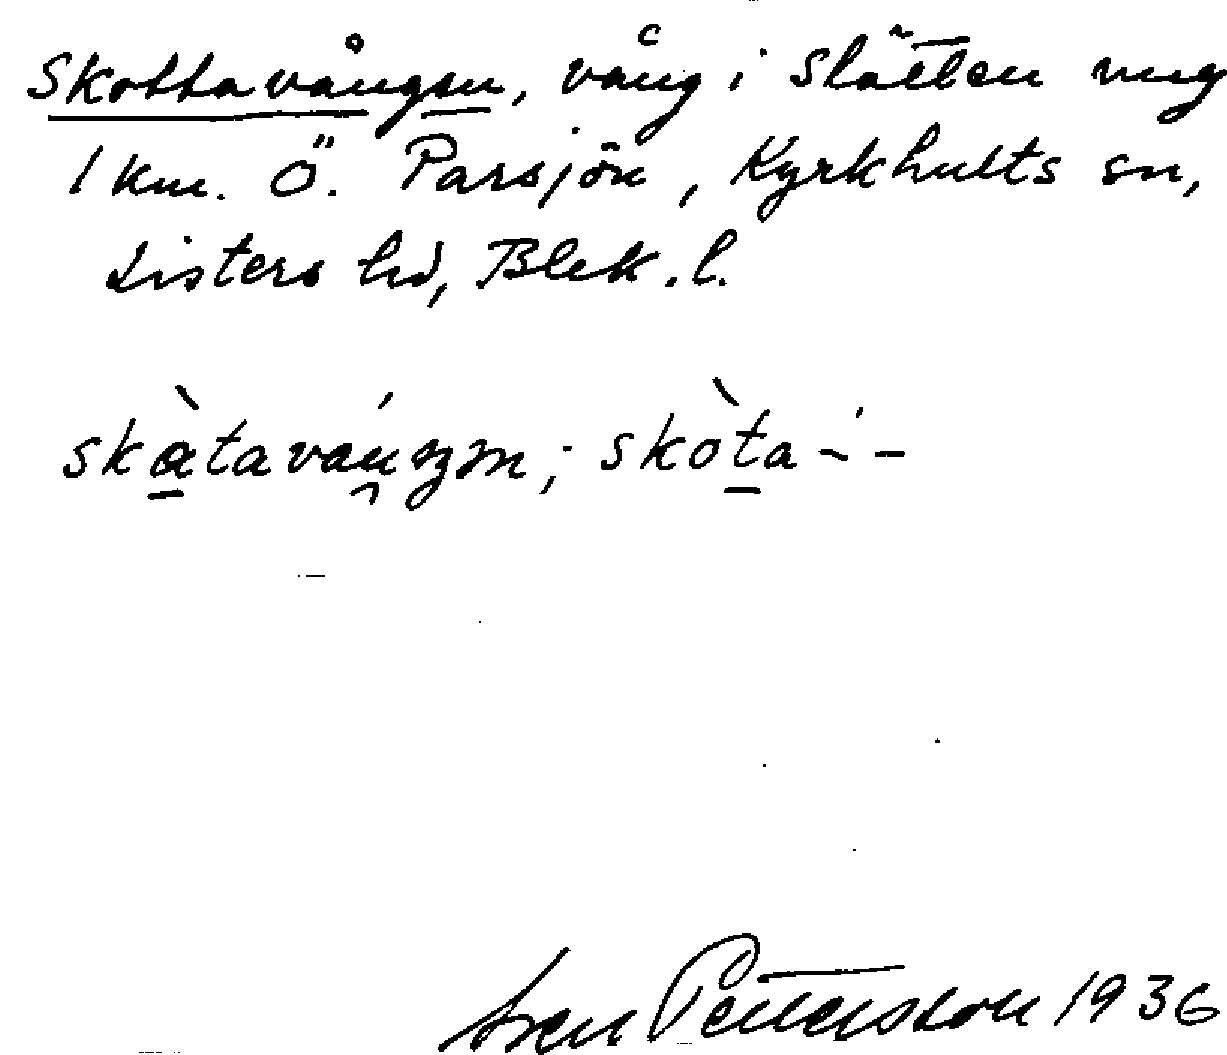 Skottavången, vång i Slätten ung
1 km. Ö. Parsjön, Kyrkhults sn,
Listers hd, Blek. l.
skàtaváŋən; skòta –́ –
Sven Pettersson 1936